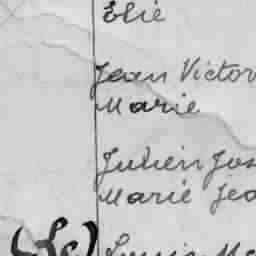 Elie
Jean Victor
Marie
Julien Jos
Marie Jea
(Le) Louis Ma